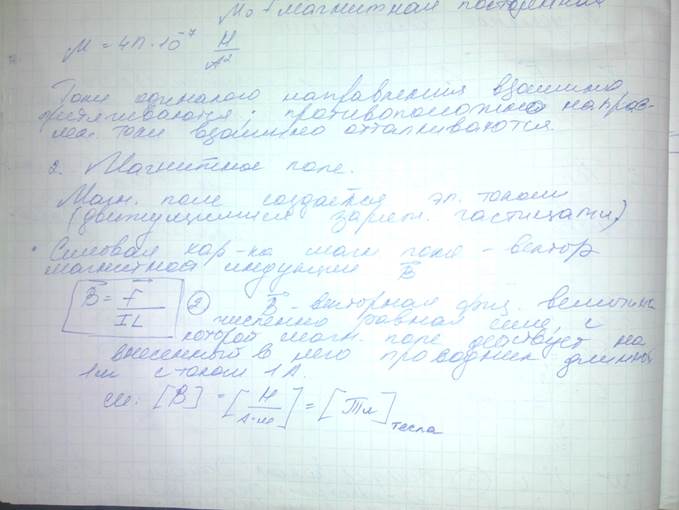 M₀ - магнитная постоянная
M = 4П·10⁻⁷ Н/А²
Токи одинакого направления взаимно
притягиваются; противоположно направ-
лен. токи взаимно отталкиваются.
2. Магнитное поле.
Магн. поле создаётся эл. током
(движущимися заряж. частицами)
Силовая хар-ка магн. поля - вектор
магнитной индукции B⃗
B⃗ = F⃗/IL (2) B⃗ - векторная физ. величина
численно равная силе, с
которой магн. поле действует на
внесенный в него проводник длинны
1м с током 1А.
си: [B] = [Н/А·м] = [Тл] тесла